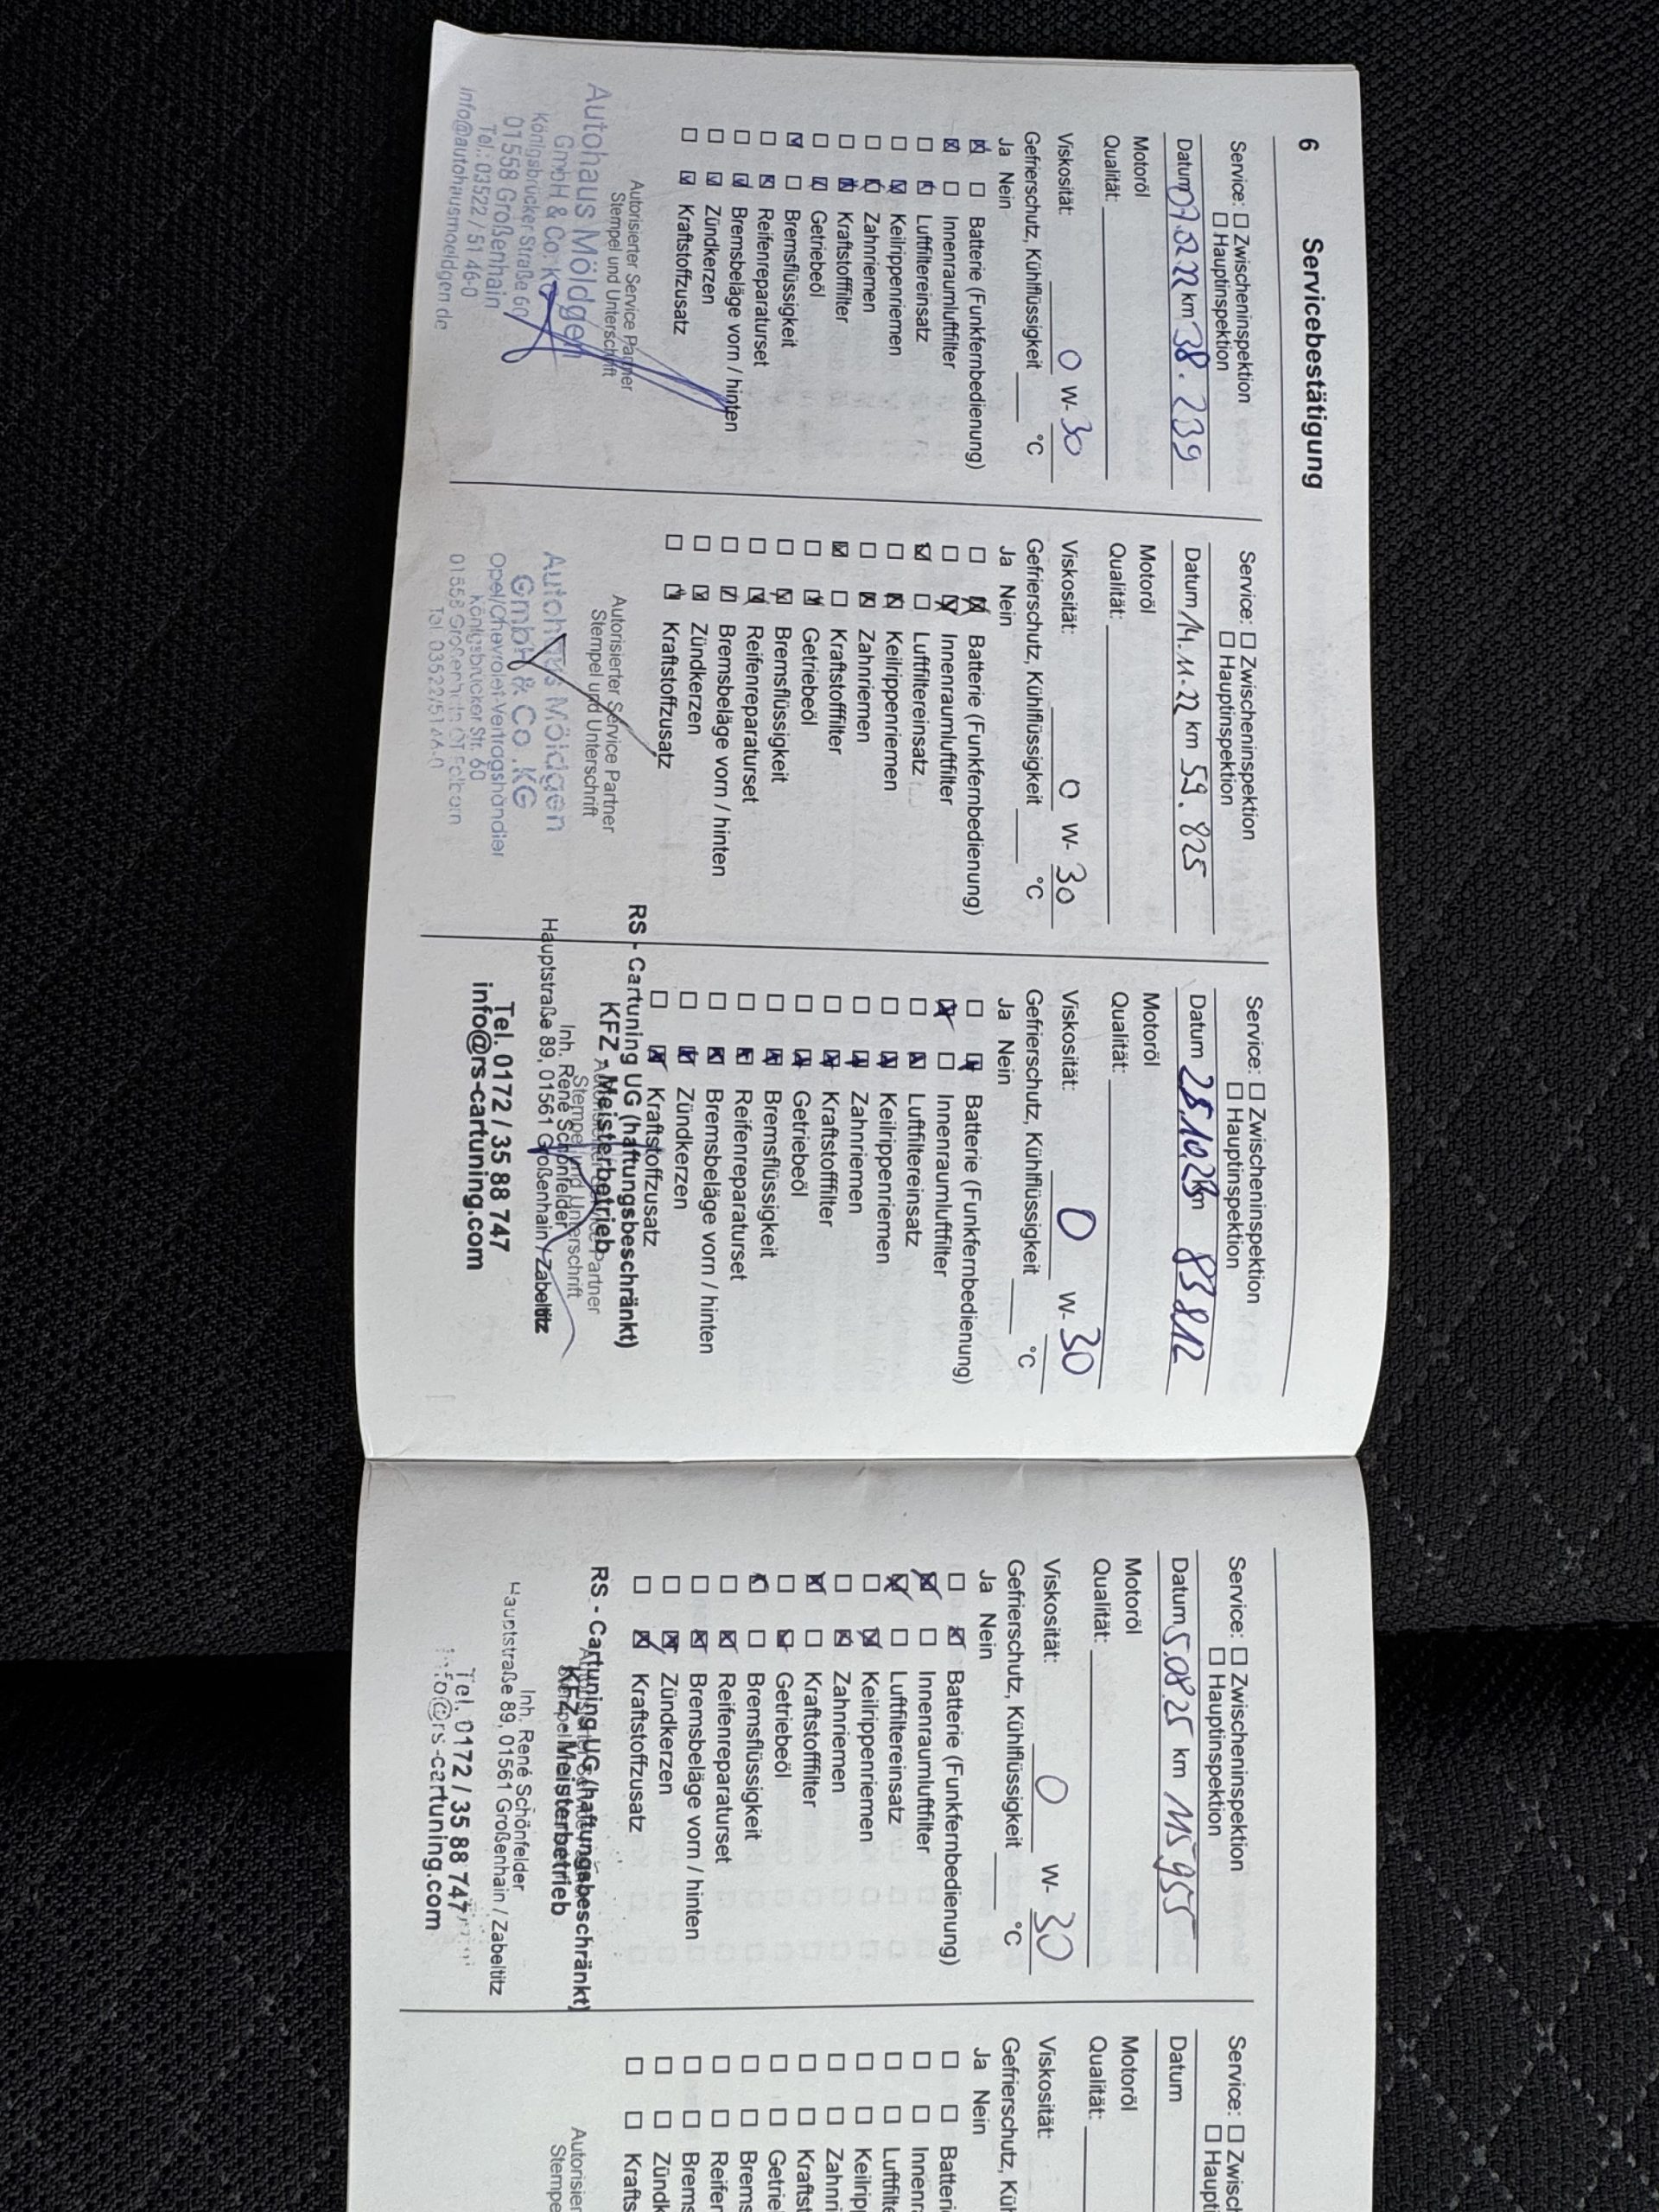 6 Servicebestätigung
Service: ☐ Zwischeninspektion
☐ Hauptinspektion
Datum 07.02.22 km 38.239
Motoröl
Qualität:
Viskosität: 0 W- 30
Gefrierschutz, Kühlflüssigkeit °C
Ja Nein
☒ ☐ Batterie (Funkfernbedienung)
☒ ☐ Innenraumluftfilter
☐ ☒ Luftfiltereinsatz
☐ ☒ Keilrippenriemen
☐ ☒ Zahnriemen
☐ ☒ Kraftstofffilter
☐ ☒ Getriebeöl
☒ ☐ Bremsflüssigkeit
☐ ☒ Reifenreparaturset
☐ ☒ Bremsbeläge vorn / hinten
☐ ☒ Zündkerzen
☐ ☒ Kraftstoffzusatz
Autorisierter Service Partner
Stempel und Unterschrift
Autohaus Möldgen
GmbH & Co. KG
Königsbrücker Straße 60
01558 Großenhain
Tel.: 03522 / 51 46-0
info@autohausmoeldgen.de
Service: ☐ Zwischeninspektion
☐ Hauptinspektion
Datum 14.11.22 km 59.825
Motoröl
Qualität:
Viskosität: 0 W- 30
Gefrierschutz, Kühlflüssigkeit °C
Ja Nein
☐ ☒ Batterie (Funkfernbedienung)
☐ ☒ Innenraumluftfilter
☒ ☐ Luftfiltereinsatz
☐ ☒ Keilrippenriemen
☐ ☒ Zahnriemen
☒ ☐ Kraftstofffilter
☐ ☒ Getriebeöl
☐ ☒ Bremsflüssigkeit
☐ ☒ Reifenreparaturset
☐ ☒ Bremsbeläge vorn / hinten
☐ ☒ Zündkerzen
☐ ☒ Kraftstoffzusatz
Autorisierter Service Partner
Stempel und Unterschrift
Autohaus Möldgen
GmbH & Co. KG
Opel/Chevrolet-Vertragshändler
Königsbrücker Str. 60
01558 Großenhain OT Folbern
Tel. 03522/5146-0
Service: ☐ Zwischeninspektion
☐ Hauptinspektion
Datum 25.10.23 km 83812
Motoröl
Qualität:
Viskosität: 0 W- 30
Gefrierschutz, Kühlflüssigkeit °C
Ja Nein
☐ ☒ Batterie (Funkfernbedienung)
☒ ☐ Innenraumluftfilter
☐ ☒ Luftfiltereinsatz
☐ ☒ Keilrippenriemen
☐ ☒ Zahnriemen
☐ ☒ Kraftstofffilter
☐ ☒ Getriebeöl
☐ ☒ Bremsflüssigkeit
☐ ☒ Reifenreparaturset
☐ ☒ Bremsbeläge vorn / hinten
☐ ☒ Zündkerzen
☐ ☒ Kraftstoffzusatz
RS - Cartuning UG (haftungsbeschränkt)
KFZ - Meisterbetrieb
Autorisierter Service Partner
Stempel und Unterschrift
Inh. René Schönfelder
Hauptstraße 89, 01561 Großenhain / Zabeltitz
Tel. 0172 / 35 88 747
info@rs-cartuning.com
Service: ☐ Zwischeninspektion
☐ Hauptinspektion
Datum 5.08.25 km 115955
Motoröl
Qualität:
Viskosität: 0 W- 30
Gefrierschutz, Kühlflüssigkeit °C
Ja Nein
☐ ☒ Batterie (Funkfernbedienung)
☒ ☐ Innenraumluftfilter
☒ ☐ Luftfiltereinsatz
☐ ☒ Keilrippenriemen
☐ ☒ Zahnriemen
☒ ☐ Kraftstofffilter
☐ ☒ Getriebeöl
☒ ☐ Bremsflüssigkeit
☐ ☒ Reifenreparaturset
☐ ☒ Bremsbeläge vorn / hinten
☐ ☒ Zündkerzen
☐ ☒ Kraftstoffzusatz
RS - Cartuning UG (haftungsbeschränkt)
KFZ - Meisterbetrieb
Inh. René Schönfelder
Hauptstraße 89, 01561 Großenhain / Zabeltitz
Tel. 0172 / 35 88 747
info@rs-cartuning.com
Service: ☐ Zwisch
☐ Haupti
Datum
Motoröl
Qualität:
Viskosität:
Gefrierschutz, Küh
Ja Nein
☐ ☐ Batteri
☐ ☐ Innenr
☐ ☐ Luftfilte
☐ ☐ Keilripp
☐ ☐ Zahnri
☐ ☐ Kraftst
☐ ☐ Getrie
☐ ☐ Brems
☐ ☐ Reifer
☐ ☐ Brems
☐ ☐ Zündk
☐ ☐ Krafts
Autorisier
Stempe